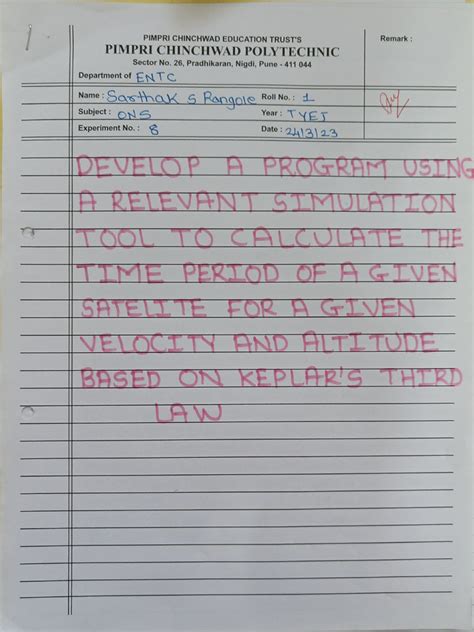 PIMPRI CHINCHWAD EDUCATION TRUST'S
PIMPRI CHINCHWAD POLYTECHNIC
Sector No. 26, Pradhikaran, Nigdi, Pune - 411 044
Remark :
Department of ENTC
Name : Sarthak S Rangole Roll No. : 1
Subject : ONS Year : TYEJ
Experiment No. : 8 Date : 24/3/23
DEVELOP A PROGRAM USING
A RELEVANT SIMULATION
TOOL TO CALCULATE THE
TIME PERIOD OF A GIVEN
SATELITE FOR A GIVEN
VELOCITY AND ALTITUDE
BASED ON KEPLAR'S THIRD
LAW